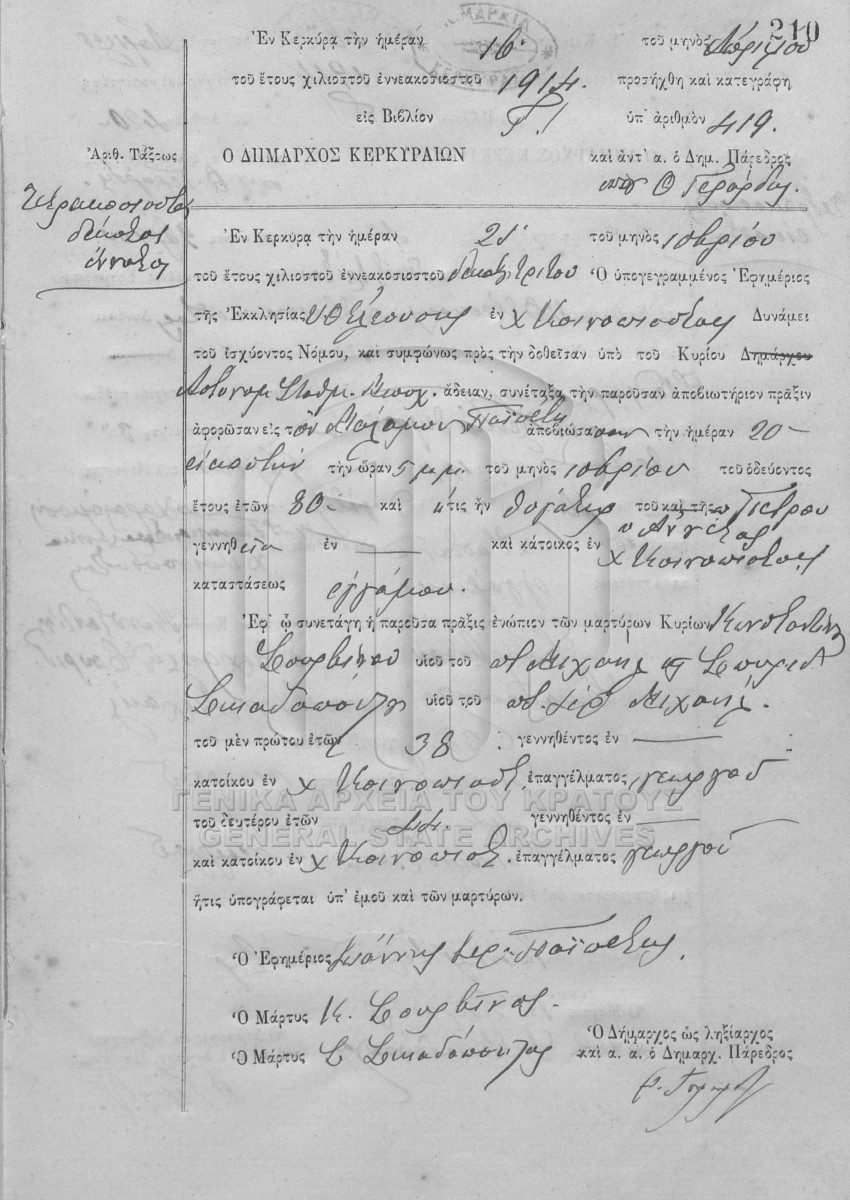 210
Ἐν Κερκύρᾳ τὴν ἡμέραν 16. τοῦ μηνὸς Ἀπριλίου
τοῦ ἔτους χιλιοστοῦ ἐννεακοσιοστοῦ 1914. προσήχθη καὶ κατεγράφη
εἰς Βιβλίον Γ! ὑπ' ἀριθμὸν 419.
Ἀριθ. Τάξεως
Ο ΔΗΜΑΡΧΟΣ ΚΕΡΚΥΡΑΙΩΝ καὶ ἀντ' α. ὁ Δημ. Πάρεδρος
Τετρακοσιοστὸς
δέκατος
ἔννατος
Ἐν Κερκύρᾳ τὴν ἡμέραν 21 τοῦ μηνὸς 10βρίου
τοῦ ἔτους χιλιοστοῦ ἐννεακοσιοστοῦ δεκάτου τρίτου Ὁ ὑπογεγραμμένος Ἐφημέριος
τῆς Ἐκκλησίας Υ Θ Ελεούσης ἐν χ Κοινοπιαστας Δυνάμει
τοῦ ἰσχύοντος Νόμου, καὶ συμφώνως πρὸς τὴν δοθεῖσαν ὑπὸ τοῦ Κυρίου Δημάρχου
Αστυνομ Σταθμ. ἄδειαν, συνέταξα τὴν παροῦσαν ἀποβιωτήριον πρᾶξιν
ἀφορῶσαν εἰς τὴν Παϊπέτη ἀποβιώσασαν τὴν ἡμέραν 20
εικοστήν τὴν ὥραν 5 μ.μ. τοῦ μηνὸς 10βρίου τοῦ ὁδεύοντος
ἔτους ἐτῶν 80 καὶ ἥτις ἦν θυγάτηρ τοῦ καὶ τῆς Πέτρου
γεννηθεῖσα ἐν — καὶ κάτοικος ἐν χ Κοινοπιαστας
καταστάσεως εγγάμου.
Ἐφ' ᾧ συνετάγη ἡ παροῦσα πρᾶξις ἐνώπιον τῶν μαρτύρων Κυρίων Κωνσταντίνου
Σουρβίνου υἱοῦ τοῦ π Μιχαήλ κ Σπυριδ
Σκιαδοπούλου υἱοῦ τοῦ π. Μιχαήλ.
τοῦ μὲν πρώτου ἐτῶν 38 γεννηθέντος ἐν —
κατοίκου ἐν χ Κοινοπιαστ. ἐπαγγέλματος γεωργού
ΓΕΝΙΚΑ ΑΡΧΕΙΑ ΤΟΥ ΚΡΑΤΟΥΣ
τοῦ δευτέρου ἐτῶν 44. γεννηθέντος ἐν —
GENERAL STATE ARCHIVES
καὶ κατοίκου ἐν χ Κοινοπιαστ. ἐπαγγέλματος γεωργού
ἥτις ὑπογράφεται ὑπ' ἐμοῦ καὶ τῶν μαρτύρων.
Ὁ Ἐφημέριος Ιωάννης Ιερ. Παϊπέτης
Ὁ Μάρτυς Κ. Σουρβίνος
Ὁ Μάρτυς Σ Σκιαδόπουλος
Ὁ Δήμαρχος ὡς ληξίαρχος
καὶ α. α. ὁ Δημαρχ. Πάρεδρος